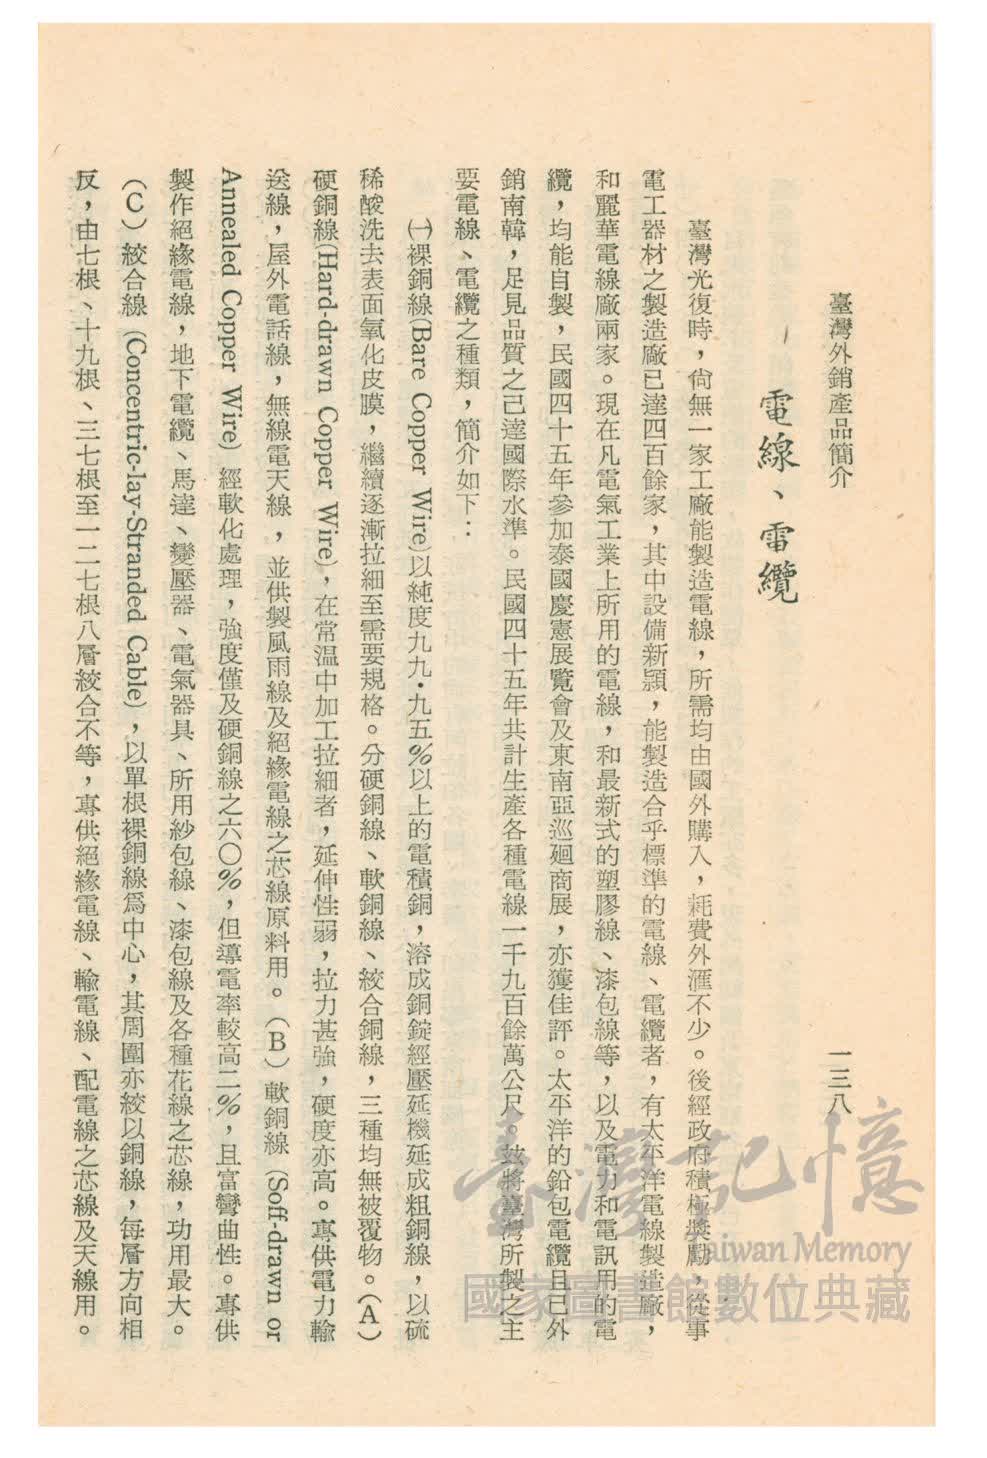 臺灣外銷產品簡介
一三八
電線、電纜
臺灣光復時，尙無一家工廠能製造電線，所需均由國外購入，耗費外滙不少。後經政府積極獎勵，從事
電工器材之製造廠已達四百餘家，其中設備新穎，能製造合乎標準的電線、電纜者，有太平洋電線製造廠，
和麗華電線廠兩家。現在凡電氣工業上所用的電線，和最新式的塑膠線、漆包線等，以及電力和電訊用的電
纜，均能自製，民國四十五年參加泰國慶憲展覽會及東南亞巡廻商展，亦獲佳評。太平洋的鉛包電纜且已外
銷南韓，足見品質之已達國際水準。民國四十五年共計生產各種電線一千九百餘萬公尺。玆將臺灣所製之主
要電線、電纜之種類，簡介如下：
㈠裸銅線(Bare Copper Wire)以純度九九·九五%以上的電積銅，溶成銅錠經壓延機延成粗銅線，以硫
稀酸洗去表面氧化皮膜，繼續逐漸拉細至需要規格。分硬銅線、軟銅線、絞合銅線，三種均無被覆物。（A）
硬銅線(Hard-drawn Copper Wire)，在常温中加工拉細者，延伸性弱，拉力甚強，硬度亦高。專供電力輸
送線，屋外電話線，無線電天線，並供製風雨線及絕緣電線之芯線原料用。（B）軟銅線 (Soff-drawn or
Annealed Copper Wire) 經軟化處理，強度僅及硬銅線之六〇%，但導電率較高二%，且富彎曲性。專供
製作絕緣電線，地下電纜、馬達、變壓器、電氣器具、所用紗包線、漆包線及各種花線之芯線，功用最大。
（C）絞合線 (Concentric-lay-Stranded Cable)，以單根裸銅線爲中心，其周圍亦絞以銅線，每層方向相
反，由七根、十九根、三七根至一二七根八層絞合不等，專供絕緣電線、輸電線、配電線之芯線及天線用。
臺灣記憶
Taiwan Memory
國家圖書館數位典藏